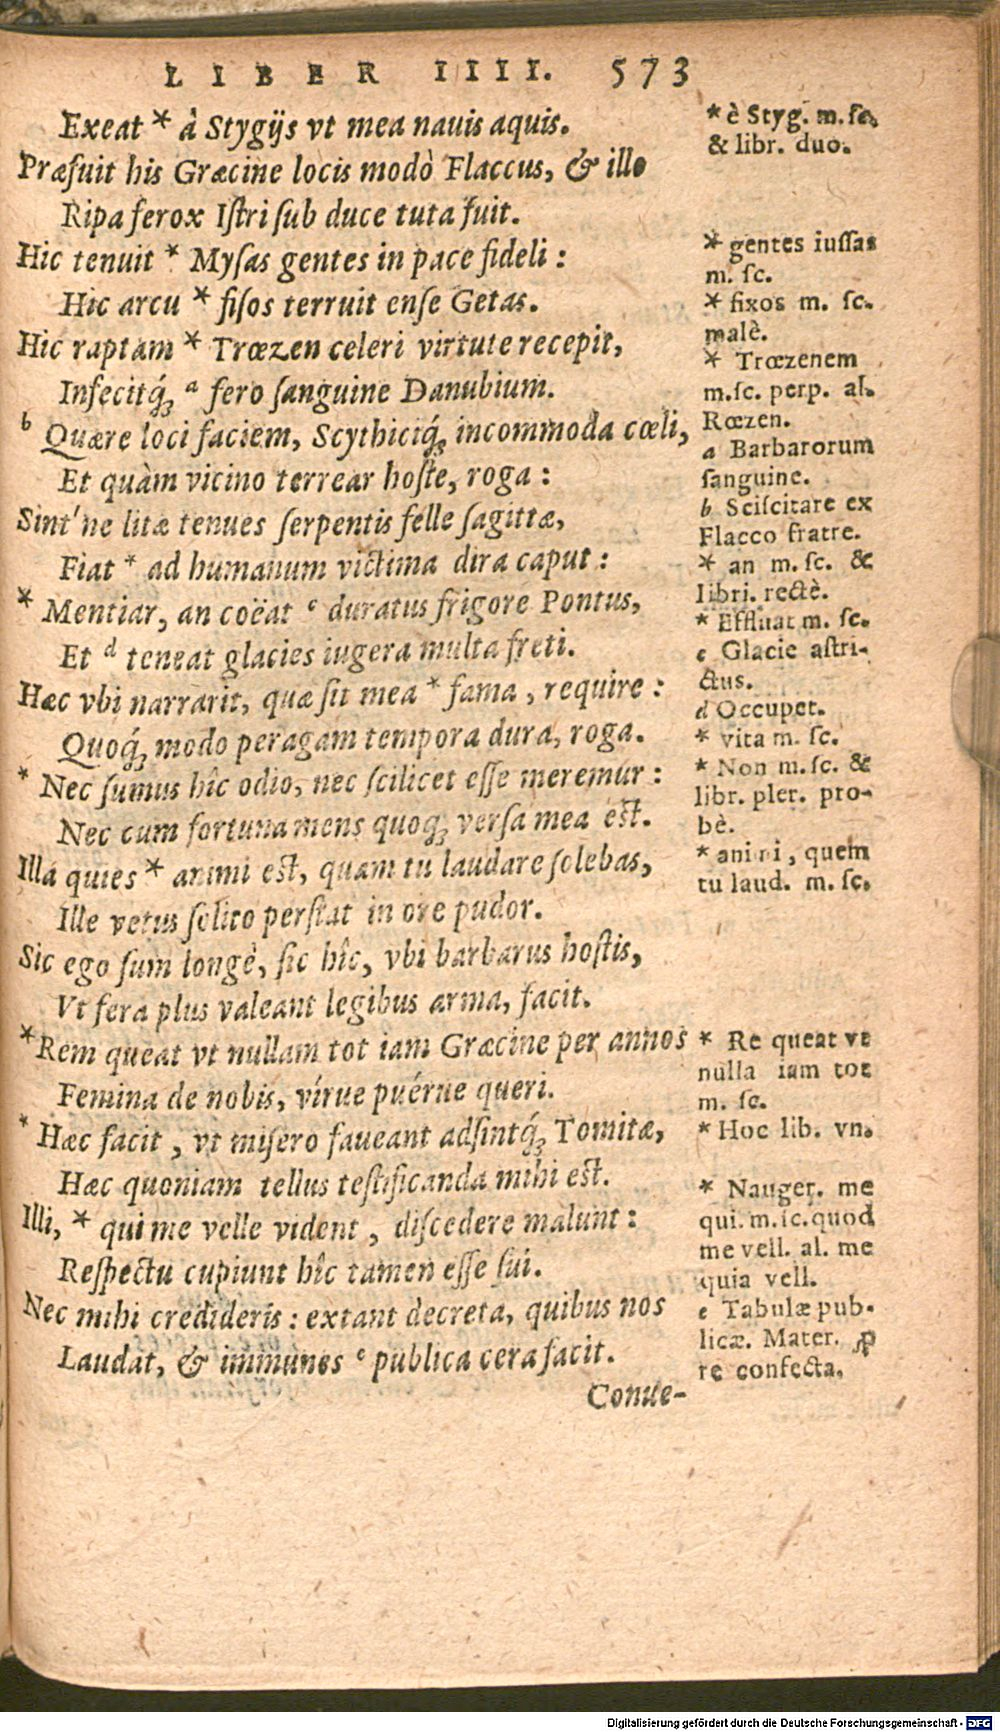 LIBER IIII. 573
Exeat * à Stygijs vt mea nauis aquis.
Præfuit his Græcine locis modò Flaccus, & illo
Ripa ferox Iſtri ſub duce tuta fuit.
Hic tenuit * Myſas gentes in pace fideli:
Hic arcu * fiſos terruit enſe Getas.
Hic raptam * Trœzen celeri virtute recepit,
Infecitq́ꝫ a fero ſanguine Danubium.
b Quære loci faciem, Scythiciq́ꝫ incommoda cœli,
Et quàm vicino terrear hoſte, roga:
Sint'ne litæ tenues ſerpentis felle ſagittæ,
Fiat * ad humanum victima dira caput:
* Mentiar, an coëat c duratus frigore Pontus,
Et d teneat glacies iugera multa freti.
Hæc vbi narrarit, quæ ſit mea * fama, require:
Quoq́ꝫ modo peragam tempora dura, roga.
* Nec ſumus hîc odio, nec ſcilicet eſſe meremur:
Nec cum fortuna mens quoqꝫ verſa mea eſt.
Illa quies * animi eſt, quam tu laudare ſolebas,
Ille vetus ſolito perſtat in ore pudor.
Sic ego ſum longè, ſic hîc, vbi barbarus hoſtis,
Vt fera plus valeant legibus arma, facit.
*Rem queat vt nullam tot iam Græcine per annos
Femina de nobis, vírue puérue queri.
* Hæc facit, vt miſero faueant adſintq́ꝫ Tomitæ,
Hæc quoniam tellus teſtificanda mihi eſt.
Illi, * qui me velle vident, diſcedere malunt:
Reſpectu cupiunt hîc tamen eſſe ſui.
Nec mihi credideris: extant decreta, quibus nos
Laudat, & immunes e publica cera facit.
Conue-
* è Styg. m. ſc.
& libr. duo.
* gentes iuſſas
m. ſc.
* fixos m. ſc.
malè.
* Trœzenem
m. ſc. perp. al.
Rœzen.
a Barbarorum
ſanguine.
b Sciſcitare ex
Flacco fratre.
* an m. ſc. &
libri. rectè.
* Effluat m. ſc.
c Glacie aſtri-
ctus.
d Occupet.
* vita m. ſc.
* Non m. ſc. &
libr. pler. pro-
bè.
* animi, quem
tu laud. m. ſc.
* Re queat vt
nulla iam tot
m. ſc.
* Hoc lib. vn.
* Nauger. me
qui. m. ſc. quod
me vell. al. me
quia vell.
e Tabulæ pub-
licæ. Mater. ꝓ
re confecta.
Digitalisierung gefördert durch die Deutsche Forschungsgemeinschaft - DFG